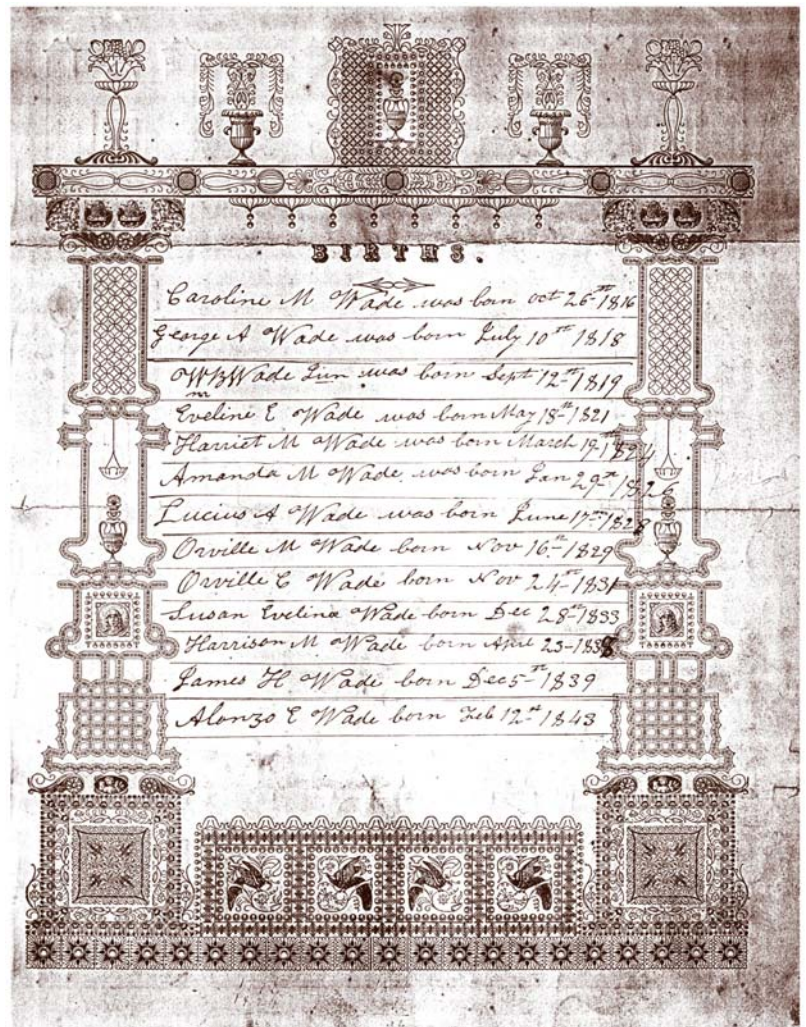 BIRTHS.
Caroline M Wade was born oct 26th 1816
George A Wade was born July 10th 1818
Wm B Wade Jun was born Sept 12th 1819
Eveline E Wade was born May 18th 1821
Harriet M Wade was born March 19th 1824
Amanda M Wade was born Jan 29th 1826
Lucius A Wade was born June 17th 1828
Orville M Wade born Nov 16th 1829
Orville C Wade born Nov 24th 1831
Susan Eveline Wade born Dec 28th 1833
Harrison M Wade born 23
James H Wade born Dec 5th 1839
Alonzo E Wade born Feb 12th 1843